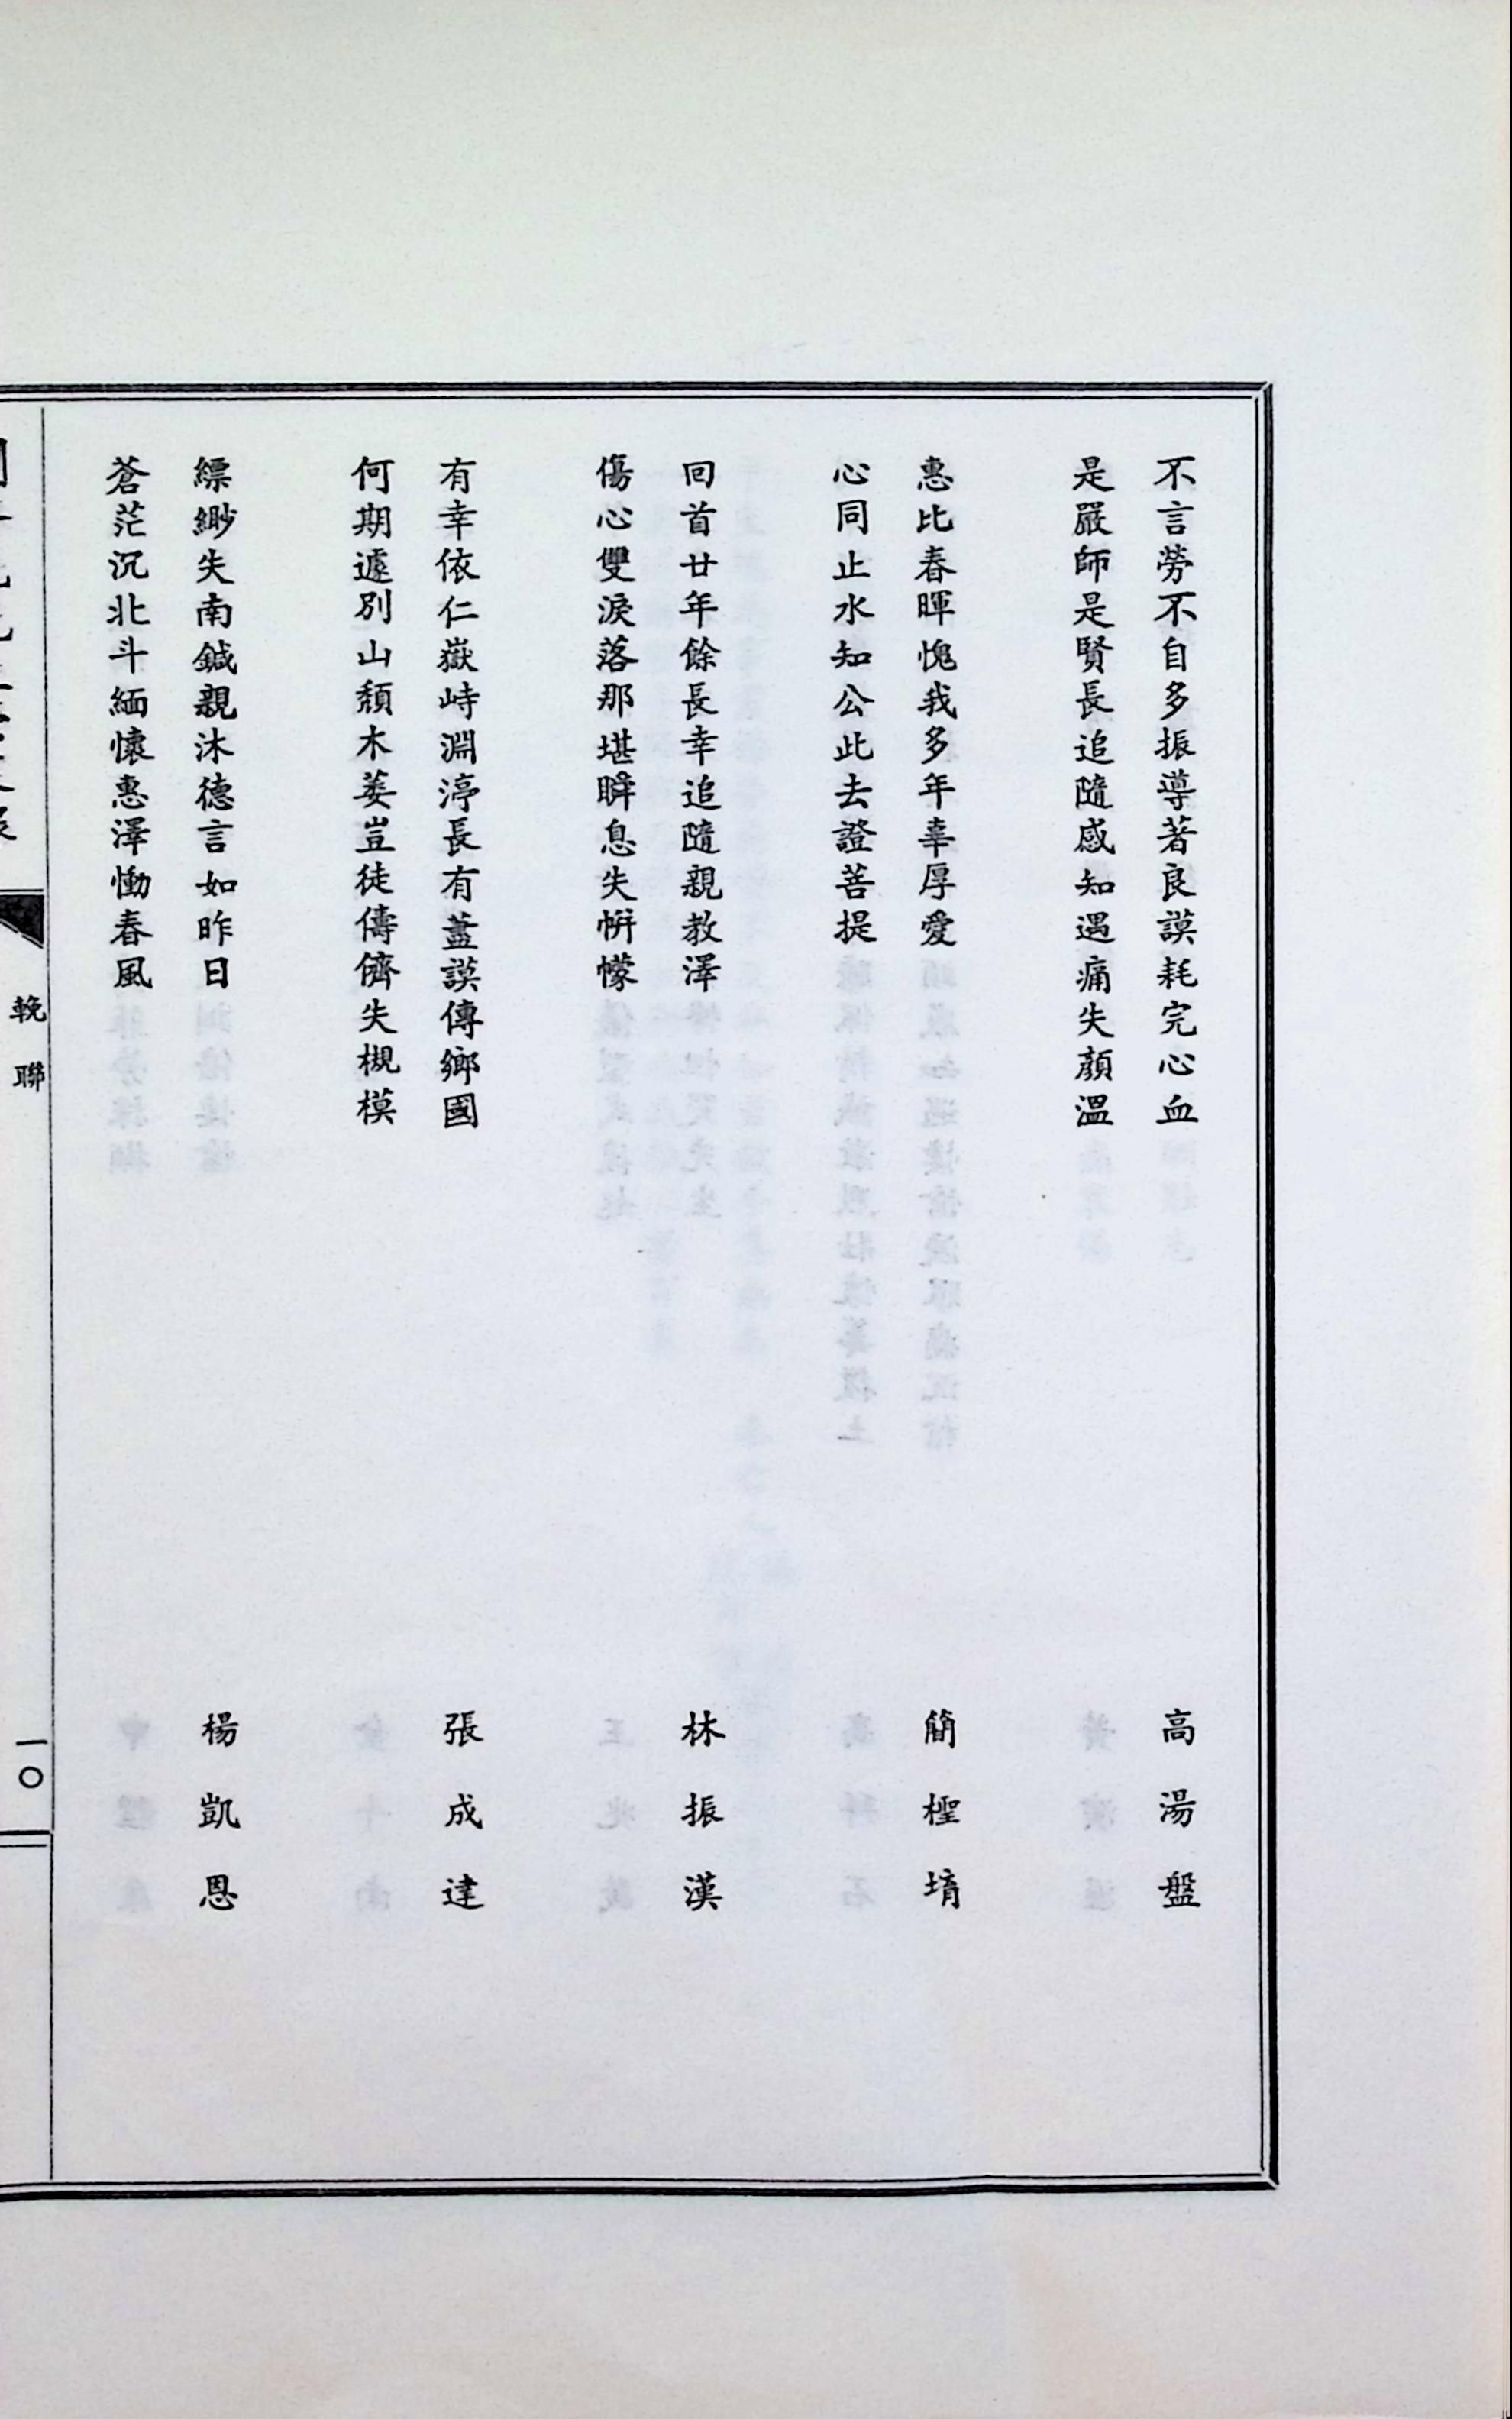 不言勞不自多振導著良謨耗完心血
高湯盤
是嚴師是賢長追隨感知遇痛失顏溫
惠比春暉愧我多年辜厚愛
簡檉堉
心同止水知公此去證菩提
回首廿年餘長幸追隨親教澤
林振漢
傷心雙淚落那堪瞬息失帡幪
有幸依仁嶽峙淵渟長有藎謨傳鄉國
張成達
何期遽別山頹木萎豈徒儔儕失槻模
縹緲失南鍼親沐德言如昨日
楊凱恩
蒼茫沉北斗緬懷惠澤慟春風
輓聯
一〇